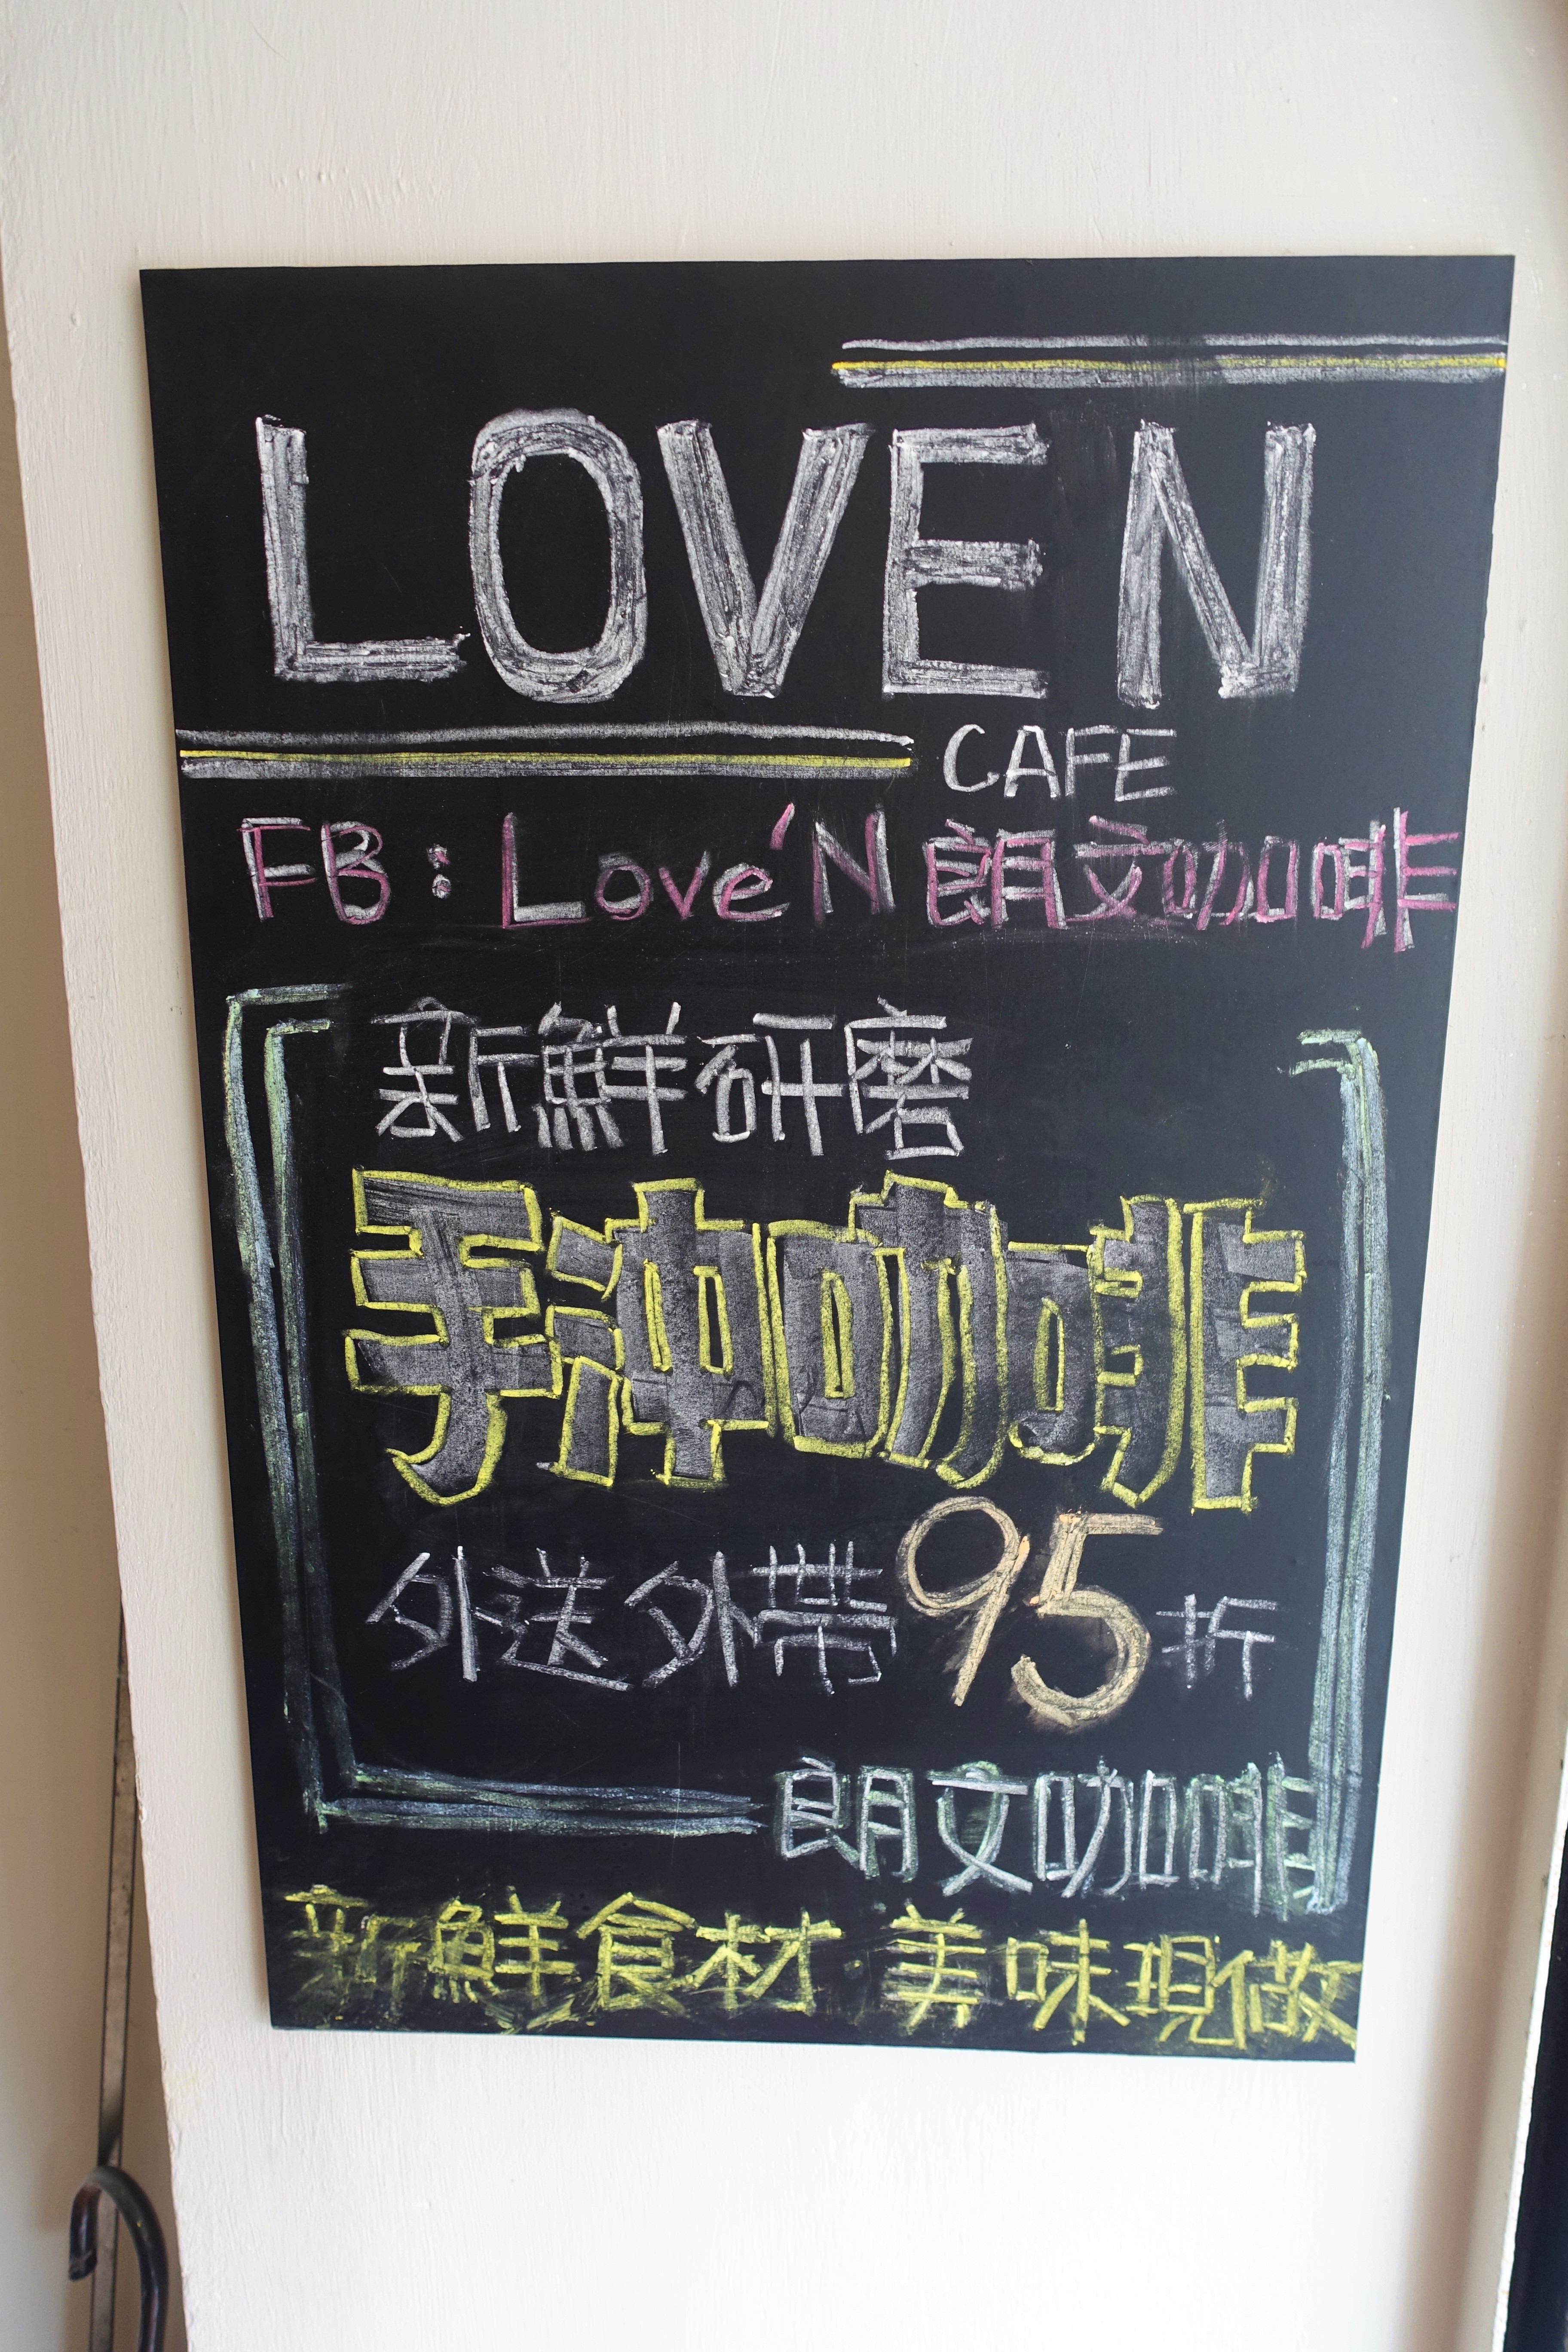 LOVEN
CAFE
FB: Love'N 朗文咖啡
新鮮研磨
手沖咖啡
外送外帶95折
朗文咖啡
新鮮食材·美味現做